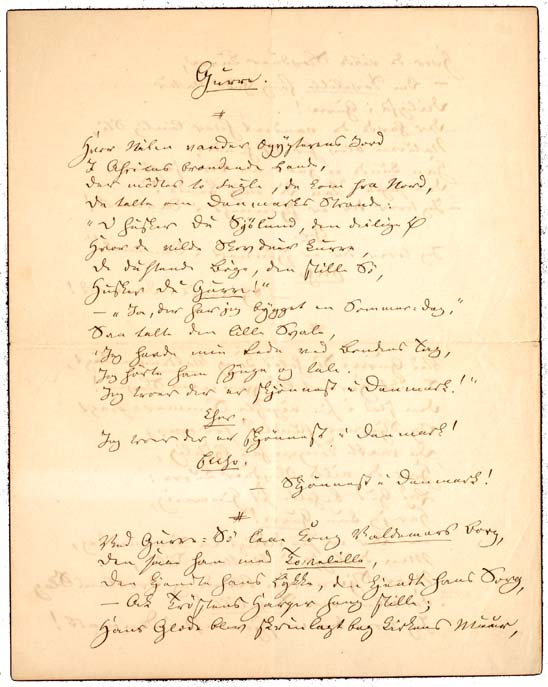 Gurre.
Hvor Nilen vander Ægypterens Jord
I Africas brændende Lande,
Der mødtes to Fugle, de kom fra Nord,
De talte om Danmarks Strande:
"O husker Du Sjølund, den deilige Ø
Hvor de vilde Skovduer kurre,
De duftende Bøge, den stille Sø,
Husker Du Gurre!"
— "Ja, der har jeg bygget en Sommer-Dag,"
Saa talte den lille Svale,
"Jeg havde min Rede ved Bondens Tag,
Jeg hørte ham synge og tale.
Jeg troer der er skjønnest i Danmark!"
Chor.
Jeg troer der er skjønnest i Danmark!
Echo.
— Skjønnest i Danmark!
Ved Gurre-Sø laae Kong Valdemars Borg,
Den saae ham med Tovelille,
Den kjendte hans Lykke, den kjendte hans Sorg,
— Ak Trøstens Harper hang stille;
Hans Glæde blev skrinlagt bag Kirkens Muur,